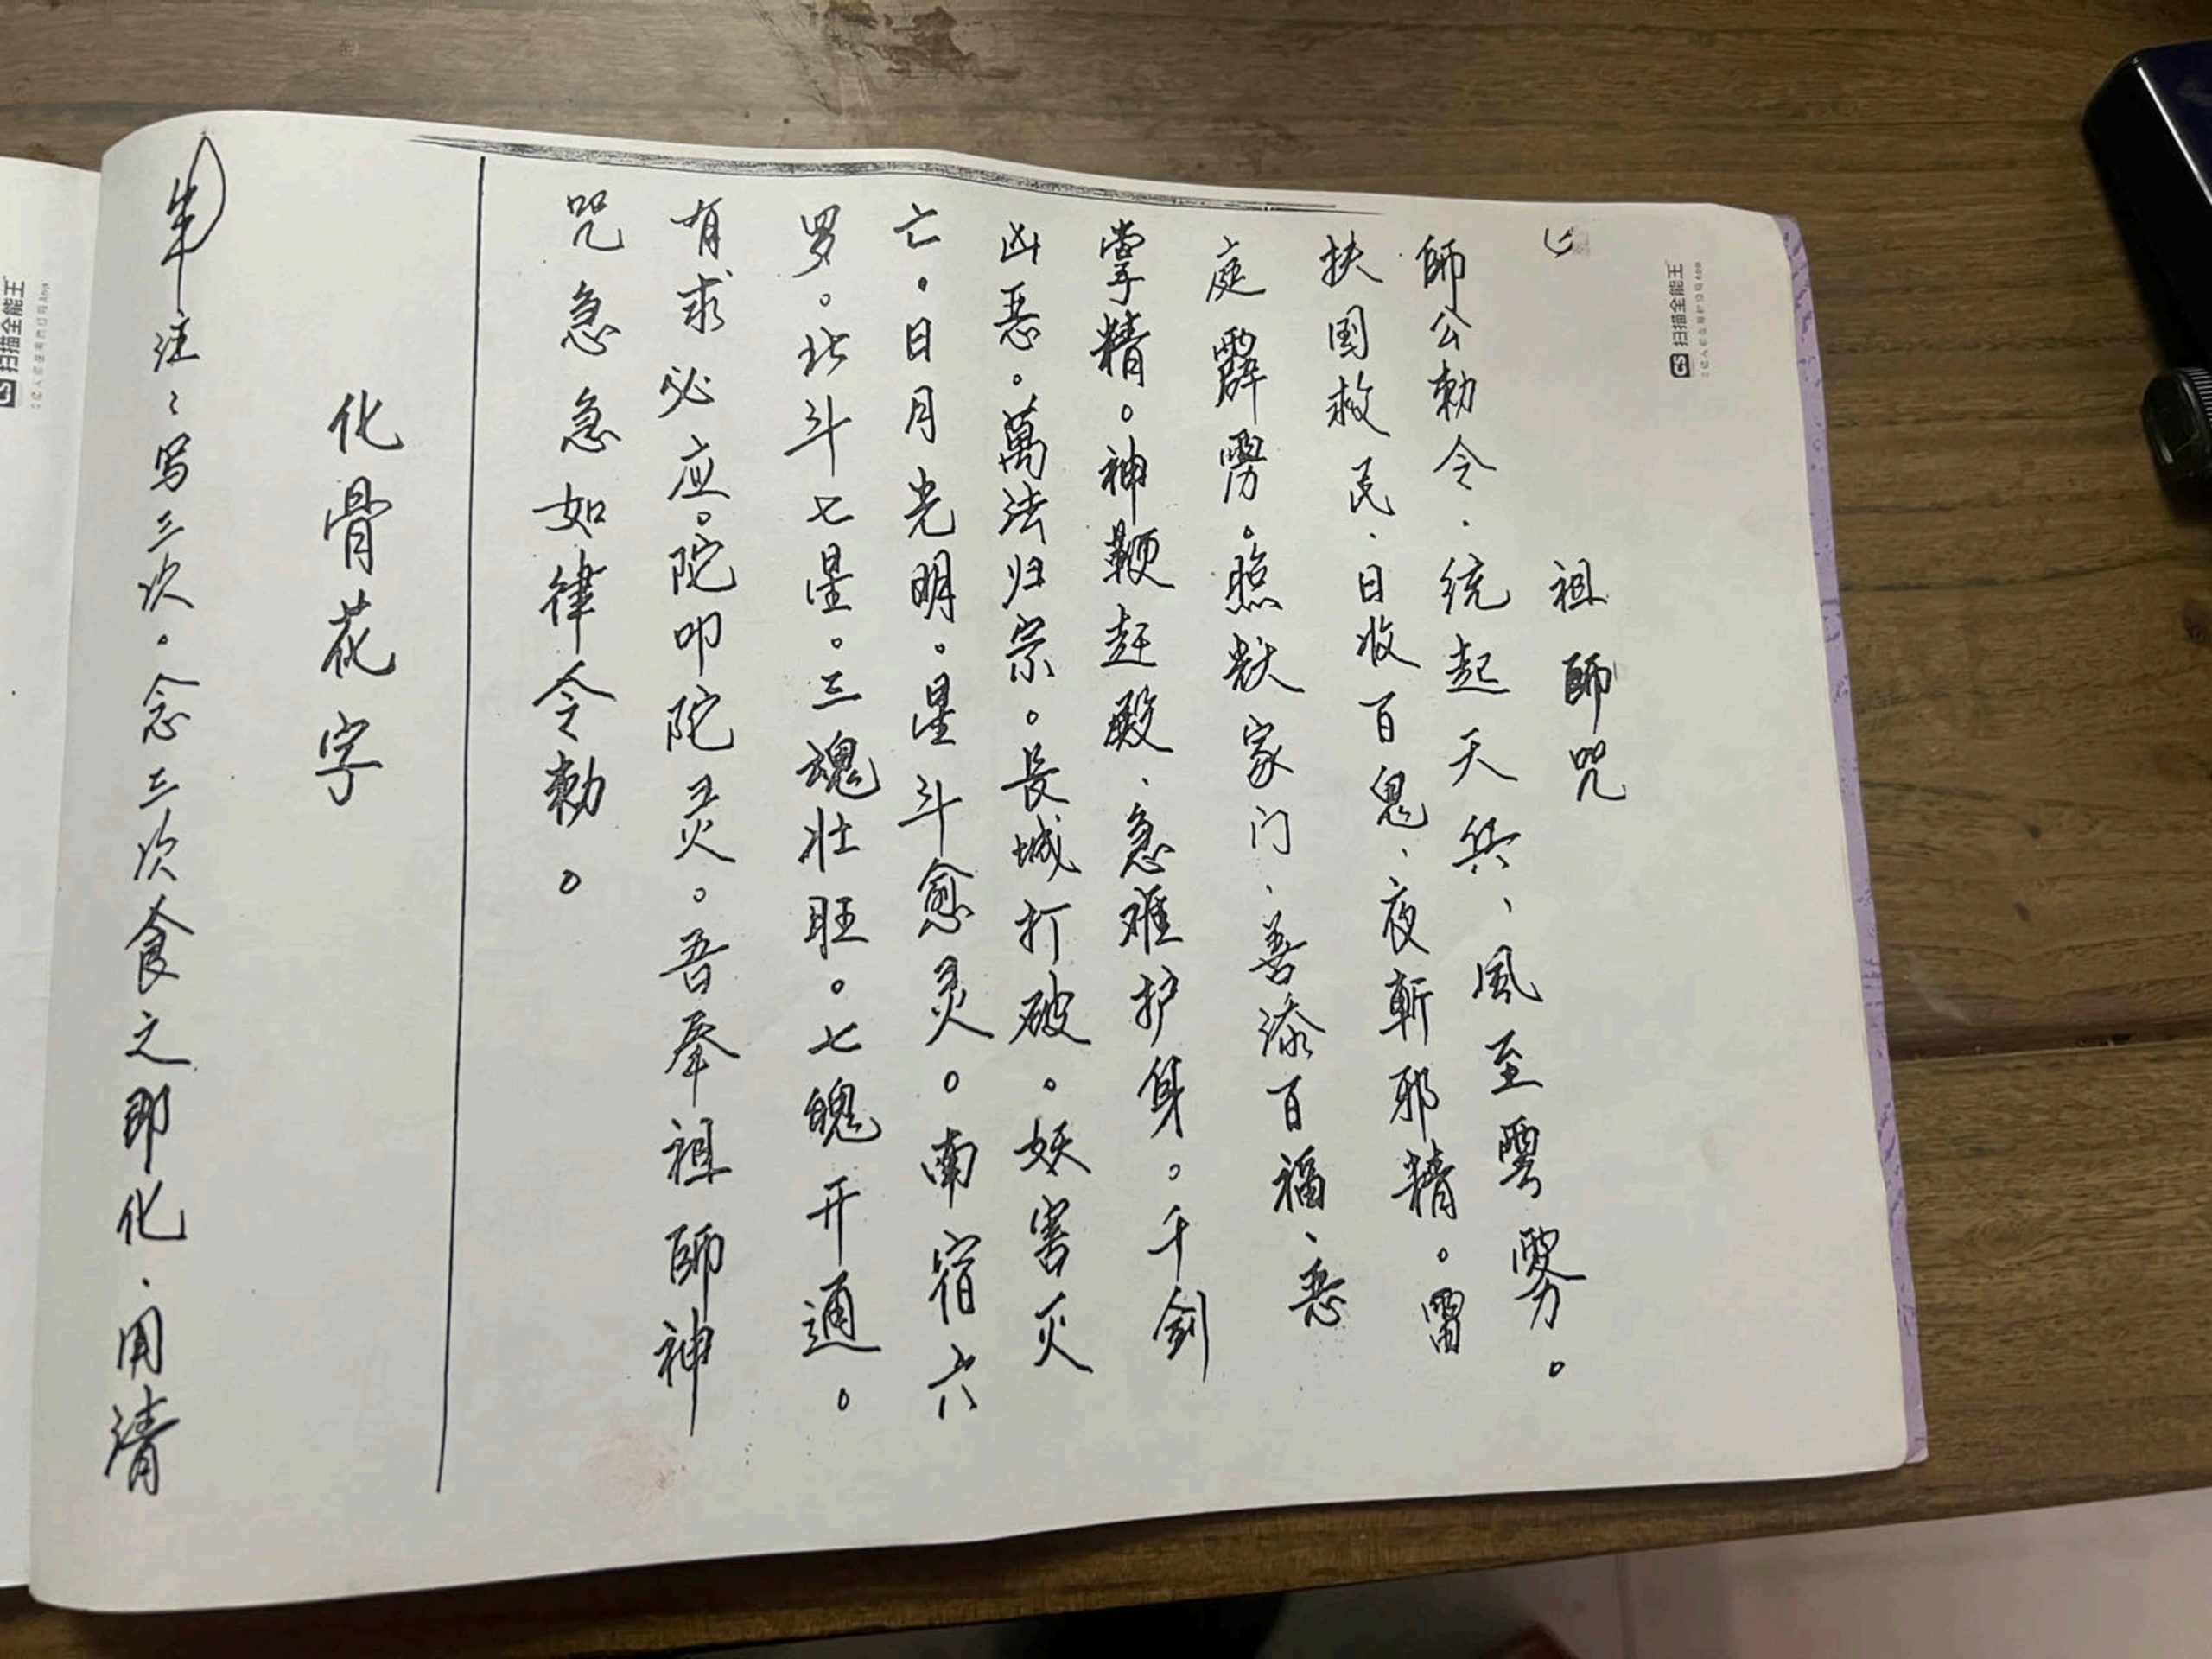 祖師咒
師公勅令.統起天兵、風至雲雾。
扶国救民、日收百鬼、夜斬邪精。雷
庭霹雳。照
家门、善添百福、恶
掌精。神鞭赶殿、急难护身。千剑
凶恶。萬法归宗。長城打破。妖害灭
亡。日月光明。星斗愈灵。南宿六
罗。北斗七星。三魂壮旺。七魄开通。
有求必应。陀叩陀灵。吾奉祖師神
咒急急如律令勅。
化骨花字
注:写三次。念三次食之即化.用清
CS 扫描全能王
CS 扫描全能王